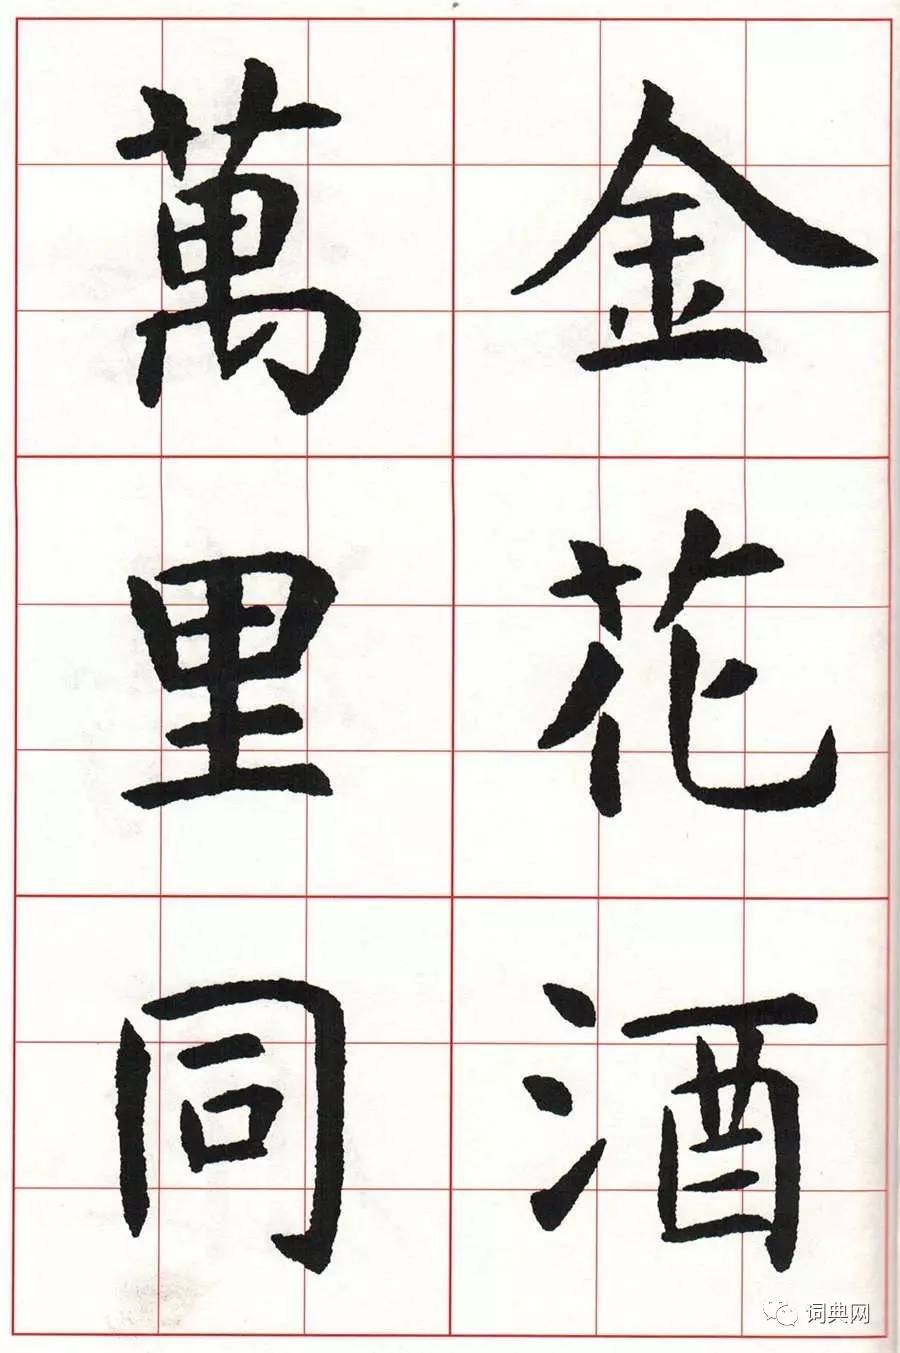 金花酒
萬里同
词典网